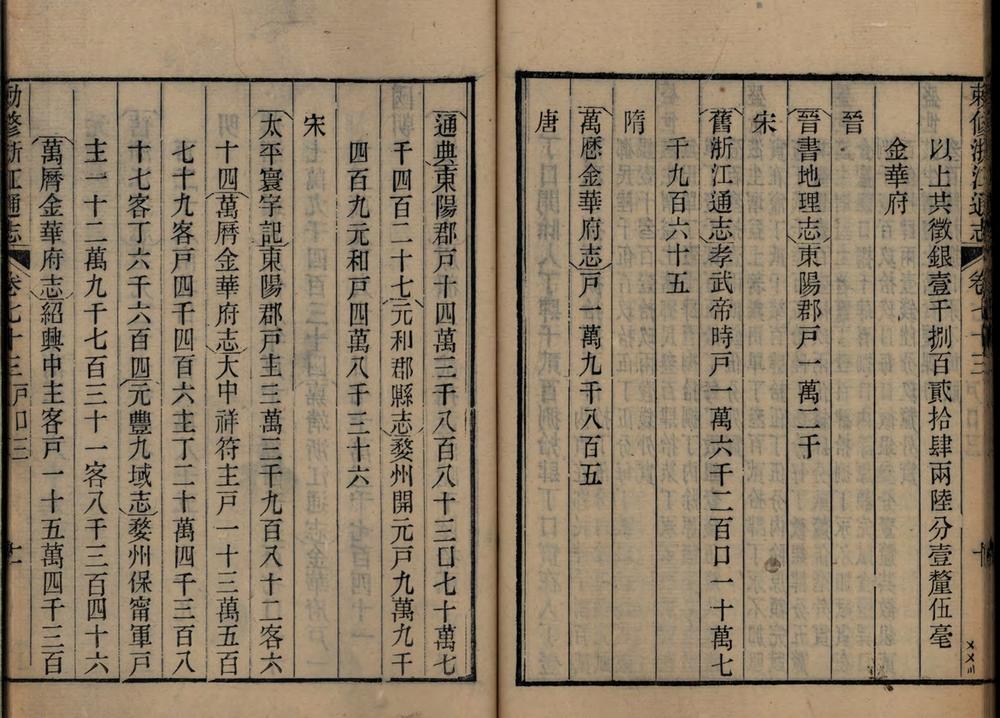 敕修浙江通志 卷七十三 戸口三 十
以上共徵銀壹千捌百貳拾肆兩陸分壹釐伍毫
金華府
晉
晉書地理志東陽郡戸一萬二千
宋
舊浙江通志孝武帝時戸一萬六千二百口一十萬七
千九百六十五
隋
萬厯金華府志戸一萬九千八百五
唐
通典東陽郡戸十四萬三千八百八十三口七十萬七
千四百二十七元和郡縣志婺州開元戸九萬九千
四百九元和戸四萬八千三十六
宋
太平寰宇記東陽郡戸主三萬三千九百八十二客六
十四萬曆金華府志大中祥符主戸一十三萬五百
七十九客戸四千四百六主丁二十萬四千三百八
十七客丁六千六百四元豐九域志婺州保甯軍戸
主一十二萬九千七百三十一客八千三百四十六
萬曆金華府志紹興中主客戸一十五萬四千三百
勅修浙江通志 卷七十三 戸口三 十一